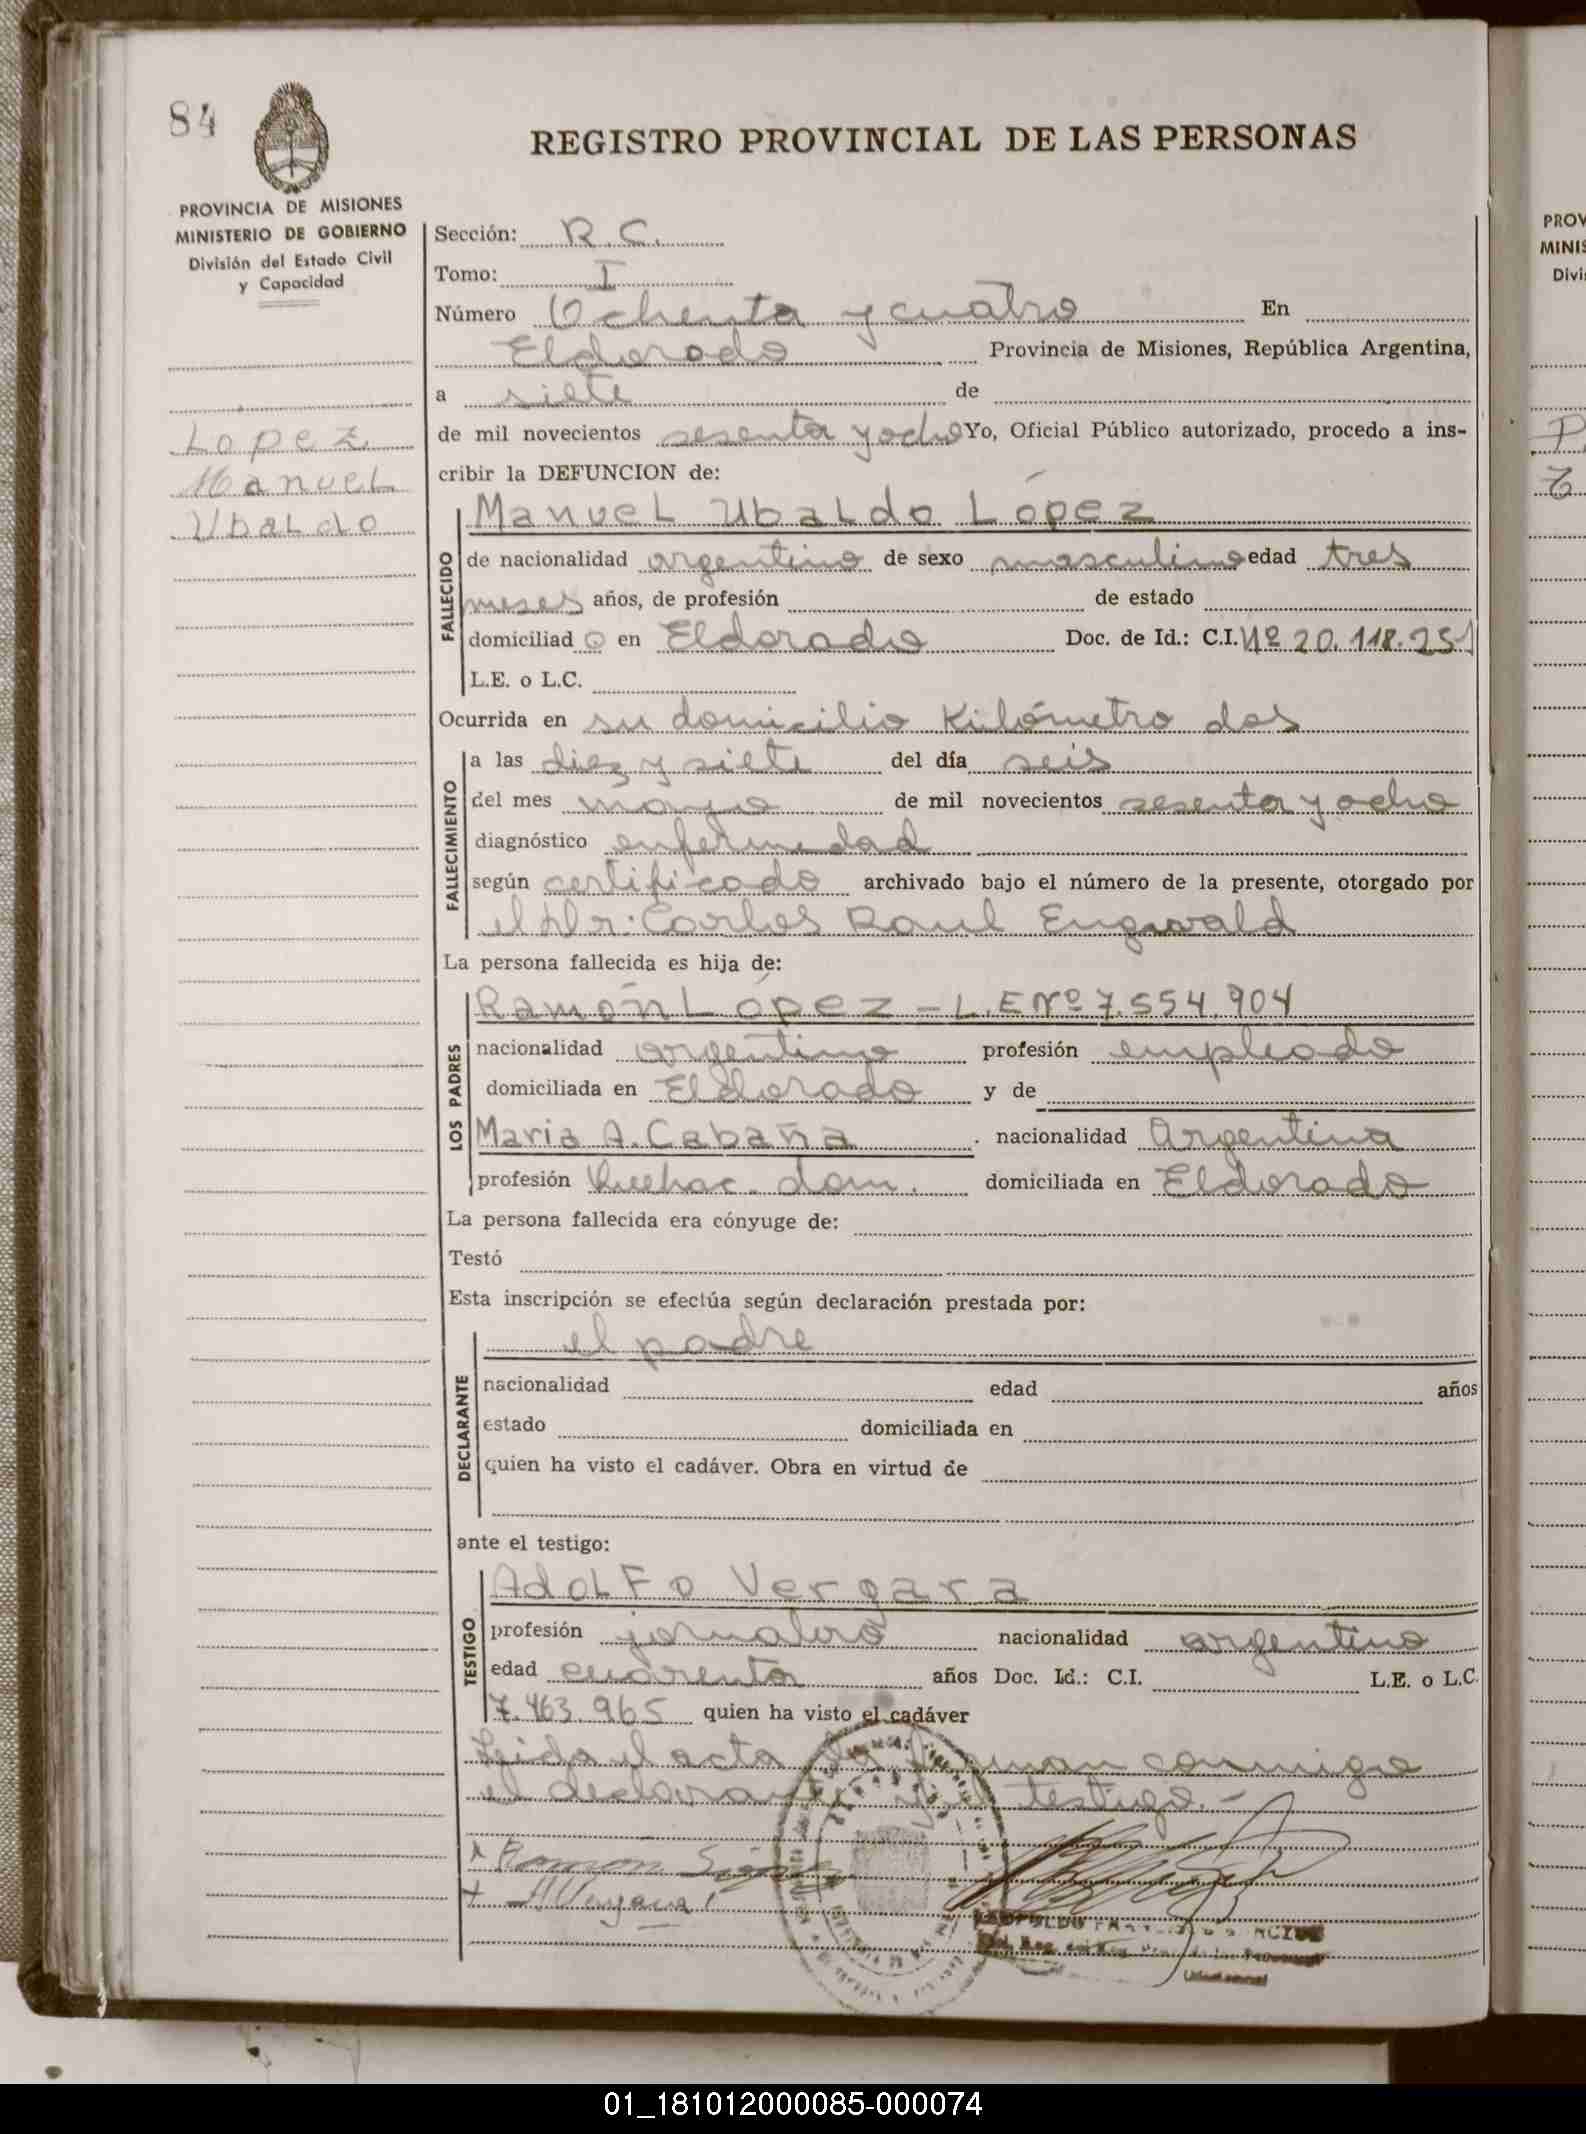 84
REGISTRO PROVINCIAL DE LAS PERSONAS
PROVINCIA DE MISIONES
MINISTERIO DE GOBIERNO
División del Estado Civil
y Capacidad
Lopez
Manuel
Ubaldo
Sección: R.C.
Tomo: I
Número Ochenta y cuatro En
Eldorado Provincia de Misiones, República Argentina,
a siete de
de mil novecientos sesenta y ocho Yo, Oficial Público autorizado, procedo a ins-
cribir la DEFUNCION de:
Manuel Ubaldo López
FALLECIDO
de nacionalidad argentino de sexo masculino edad tres
meses años, de profesión de estado
domiciliad o en Eldorado Doc. de Id.: C.I. Nº 20.118.251
L.E. o L.C.
Ocurrida en su domicilio Kilómetro dos
FALLECIMIENTO
a las diez y siete del día seis
del mes mayo de mil novecientos sesenta y ocho
diagnóstico enfermedad
según certificado archivado bajo el número de la presente, otorgado por
el Dr. Carlos Raul Engwald
La persona fallecida es hija de:
LOS PADRES
Ramón López - L.E Nº 7.554.904
nacionalidad argentino profesión empleado
domiciliada en Eldorado y de
Maria A. Cabaña nacionalidad Argentina
profesión Quehac. dom. domiciliada en Eldorado
La persona fallecida era cónyuge de:
Testó
Esta inscripción se efectúa según declaración prestada por:
el padre
DECLARANTE
nacionalidad edad años
estado domiciliada en
quien ha visto el cadáver. Obra en virtud de
ante el testigo:
TESTIGO
Adolfo Vergara
profesión jornalero nacionalidad argentino
edad cuarenta años Doc. Id.: C.I. L.E. o L.C.
7.463.965 quien ha visto el cadáver
Leida el acta la firman conmigo
el declarante y el testigo.-
x Ramon
+ A Vergara
PROV
MINIS
Divi
01_181012000085-000074